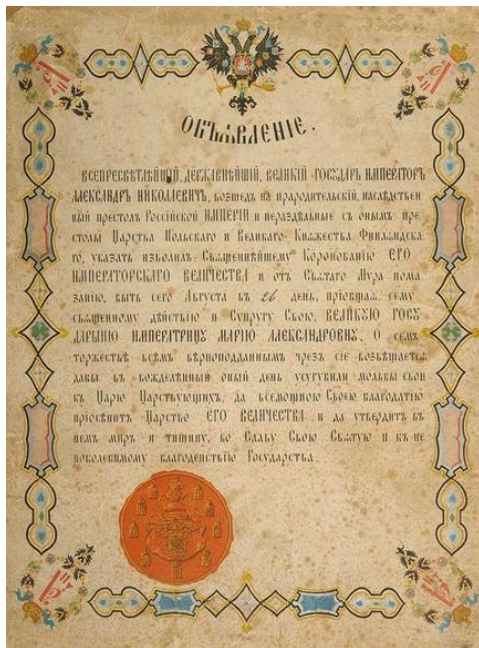 ОБЪЯВЛЕНІЕ.
ВСЕПРЕСВѢТЛѢЙШІЙ, ДЕРЖАВНѢЙШІЙ, ВЕЛИКІЙ ГОСУДАРЬ ИМПЕРАТОРЪ
АЛЕКСАНДРЪ НИКОЛАЕВИЧЪ, возшедъ на прародительскій, наслѣдствен
ный престолъ Россійской ИМПЕРІИ и нераздѣльные съ онымъ пре
столы Царства Польскаго и Великаго Княжества Финляндска
го, указать изволилъ Священнѣйшему Коронованію ЕГО
ИМПЕРАТОРСКАГО ВЕЛИЧЕСТВА и отъ Святаго Мѵра пома
занію, быть сего Августа въ 26 день, пріобщая сему
священному дѣйствію и Супругу Свою, ВЕЛИКУЮ ГОСУ
ДАРЫНЮ ИМПЕРАТРИЦУ МАРІЮ АЛЕКСАНДРОВНУ. О семъ
торжествѣ всѣмъ вѣрноподданнымъ чрезъ сіе возвѣщается
дабы въ вожделѣнный оный день усугубили мольбы свои
къ Царю Царствующихъ, да всемощною Своею благодатію
пріосѣнитъ Царство ЕГО ВЕЛИЧЕСТВА и да утвердитъ въ
немъ миръ и тишину, во Славу Свою Святую и къ не
поколебимому благоденствію Государства.